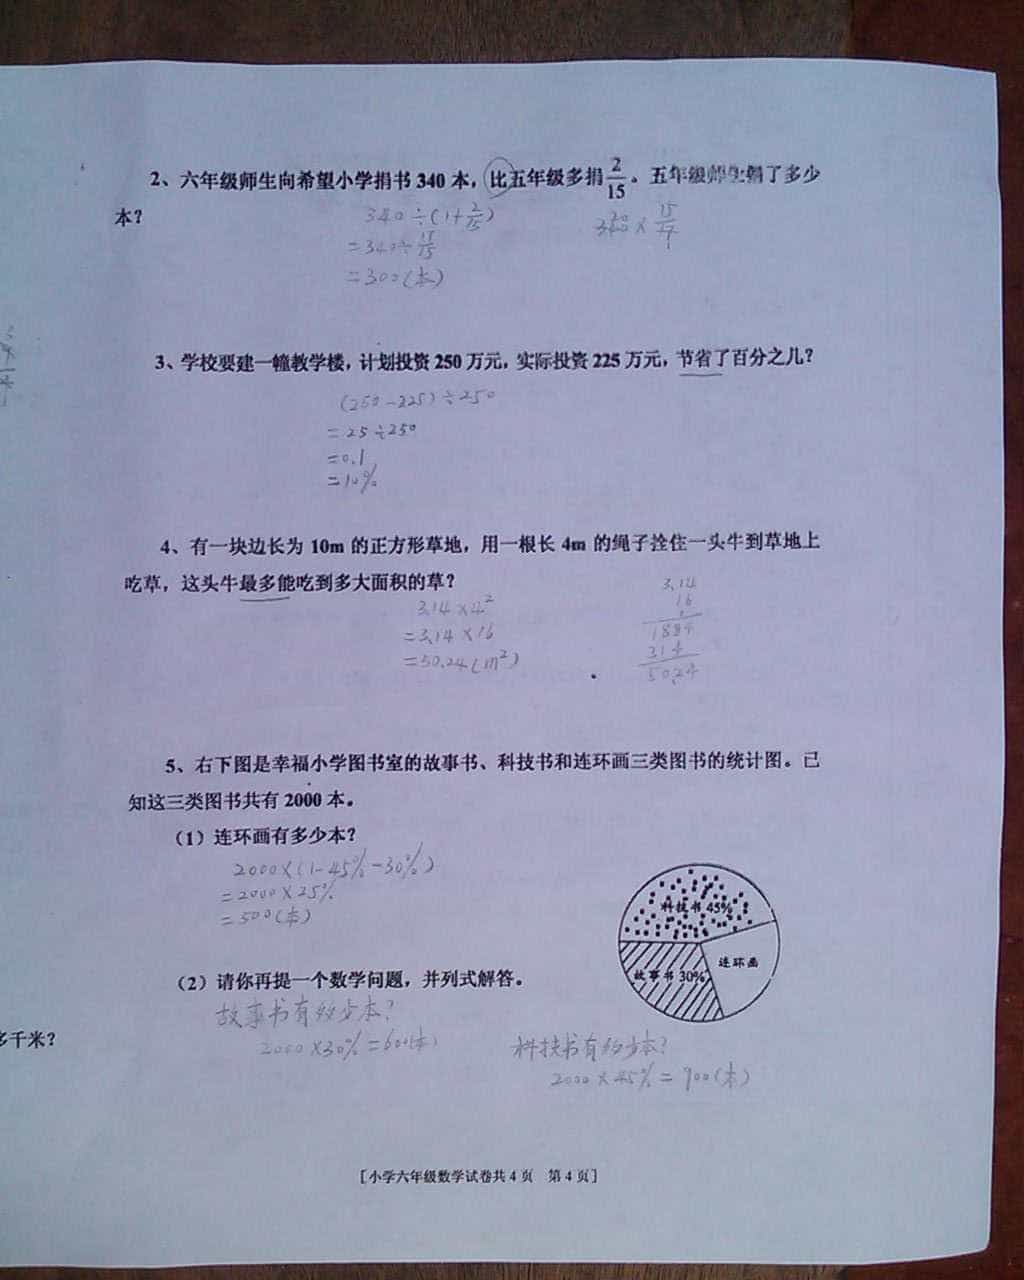 2、六年级师生向希望小学捐书 340 本，比五年级多捐 2/15 。五年级师生捐了多少
本？
340÷(1+2/15)
=340÷17/15
=300(本)
20
340×15/17
1
3、学校要建一幢教学楼，计划投资 250 万元，实际投资 225 万元，节省了百分之几？
(250-225)÷250
=25÷250
=0.1
=10%
4、有一块边长为 10m 的正方形草地，用一根长 4m 的绳子拴住一头牛到草地上
吃草，这头牛最多能吃到多大面积的草？
3.14×4²
=3.14×16
=50.24(m²)
3.14
16
1884
314
50.24
5、右下图是幸福小学图书室的故事书、科技书和连环画三类图书的统计图。已
知这三类图书共有 2000 本。
（1）连环画有多少本？
2000×(1-45%-30%)
=2000×25%
=500(本)
科技书 45%
连环画
故事书 30%
（2）请你再提一个数学问题，并列式解答。
故事书有多少本？
2000×30%=600(本)
科技书有多少本？
2000×45%=900(本)
多千米？
[小学六年级数学试卷共 4 页 第 4 页]